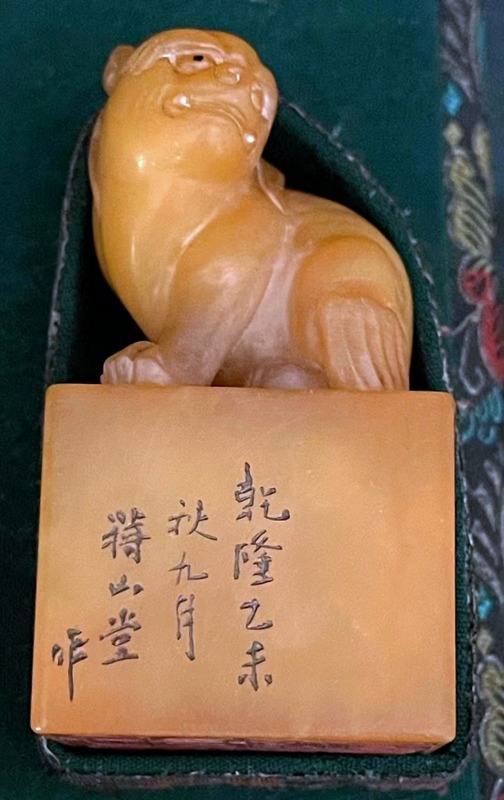 乾隆乙未
秋九月
蔣山堂
作